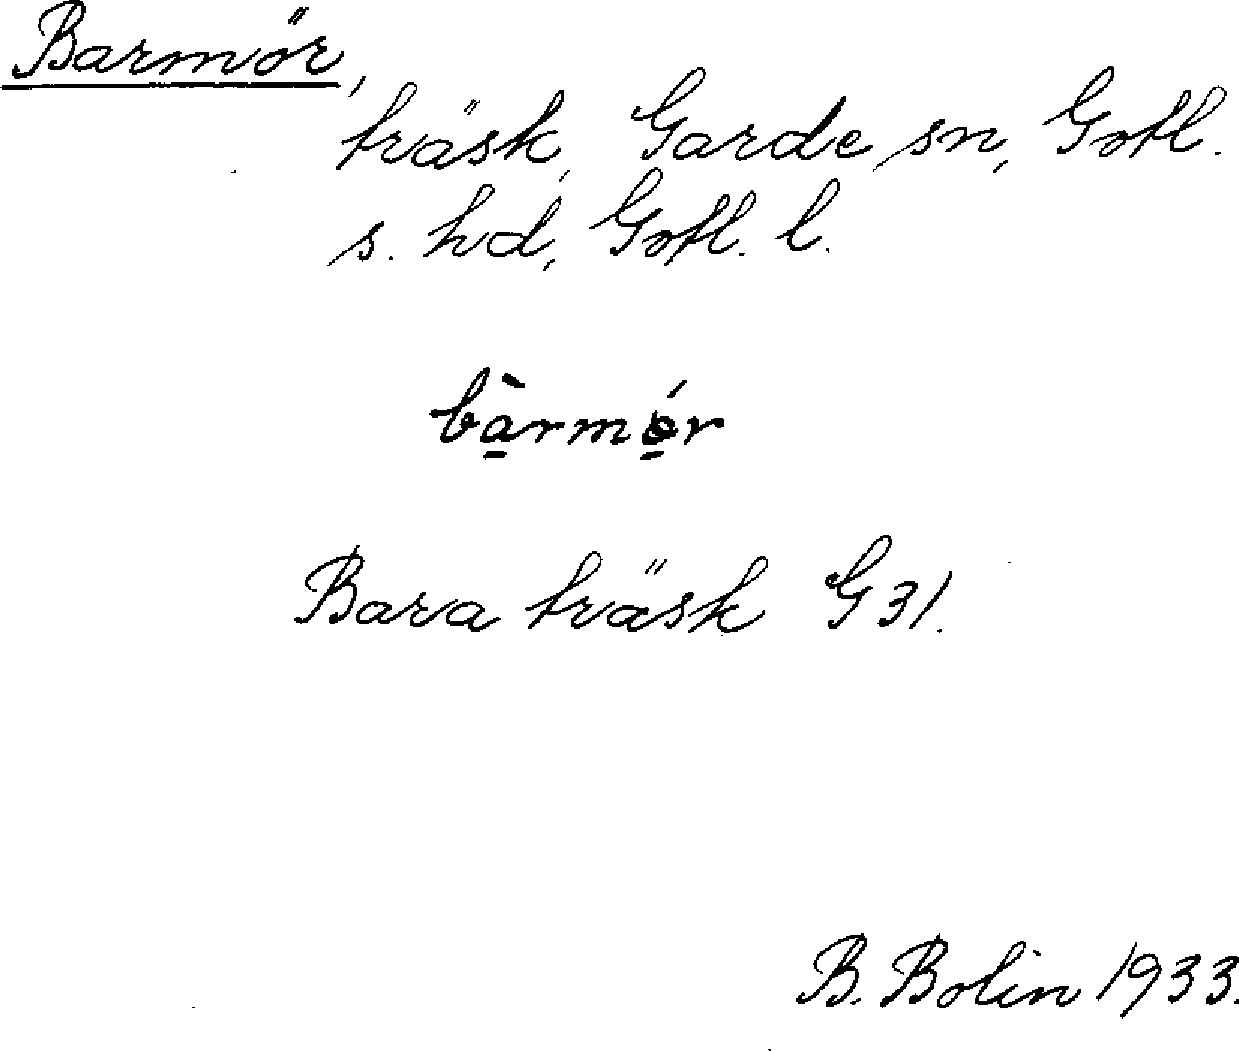 Barmör,
träsk, Garde sn, Gotl.
s. hd, Gotl. l.
bàrmór
Bara träsk G 31.
B. Bolin 1933.